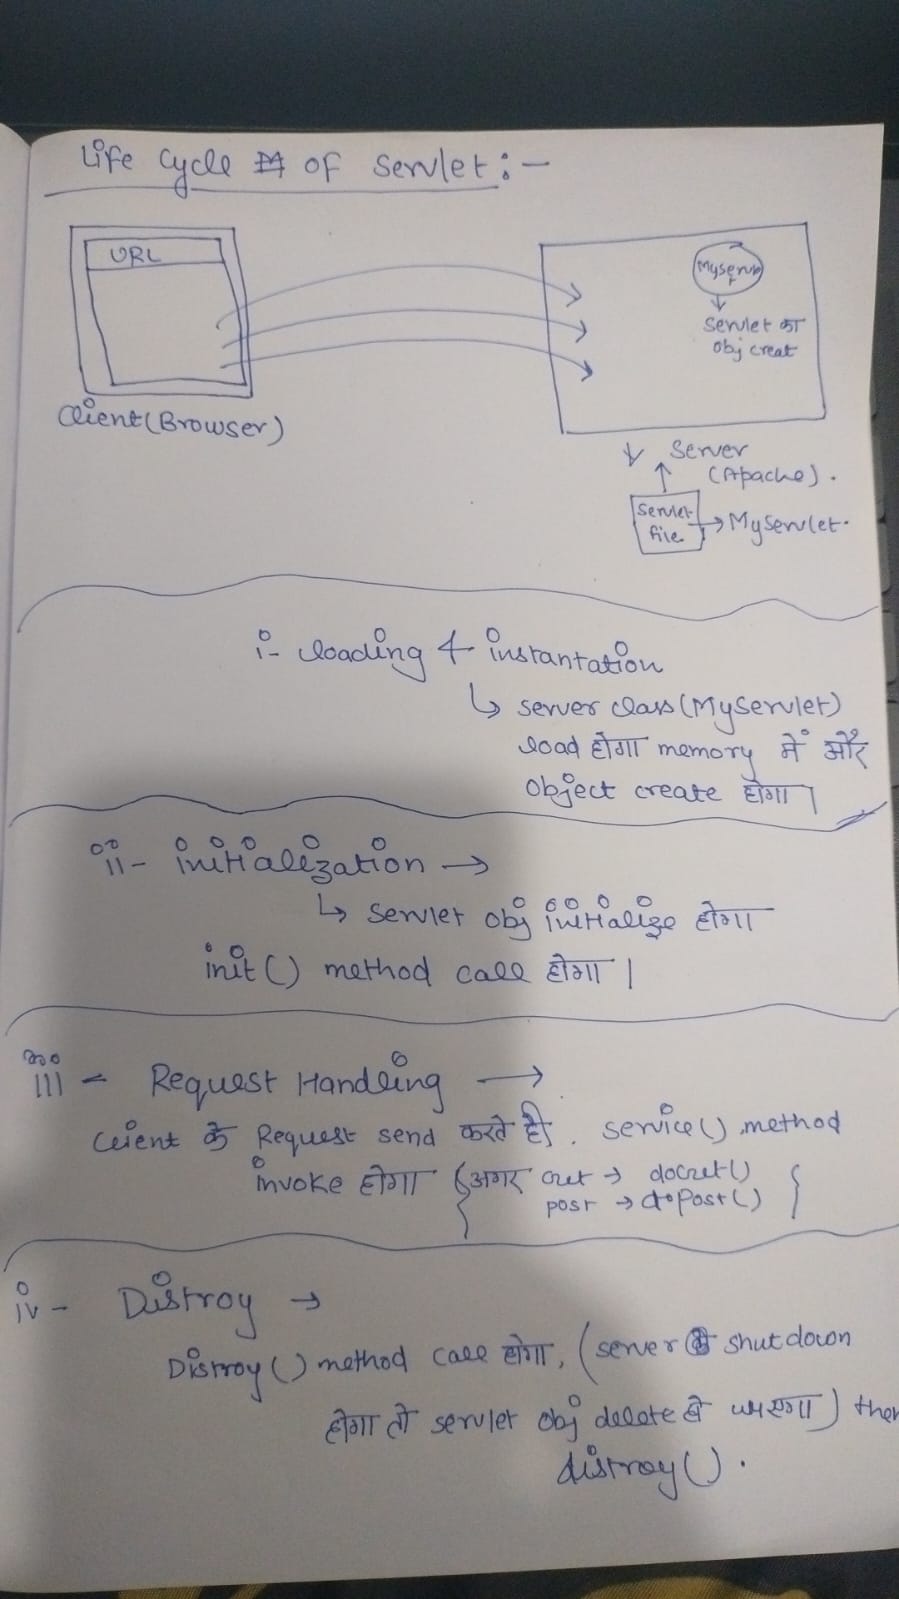 Life Cycle of Servlet :-
URL
Client (Browser)
MyServlet
Servlet का
obj creat
Server
(Apache).
Servlet
file
MyServlet.
i- loading & instantation
server class (MyServlet)
load होगा memory में और
object create होगा।
ii- initialization →
servlet obj initialize होगा
init() method call होगा।
iii- Request Handling →
Client के Request send करते ही. service() method
invoke होगा { अगर Get → doGet()
post → doPost() }
iv- Distroy →
Distroy() method call होगा, (server shutdown
होगा तो servlet obj delete हो जाएगा) then
distroy().